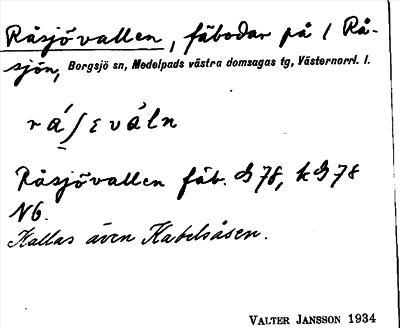 Råsjövallen, fäbodar på / Rå-
sjön, Borgsjö sn, Medelpads västra domsagas tg, Västernorrl. l.
Råsjövallen fäb. G 78, k G 78
NG.
Kallas även Kabelsåsen.
VALTER JANSSON 1934